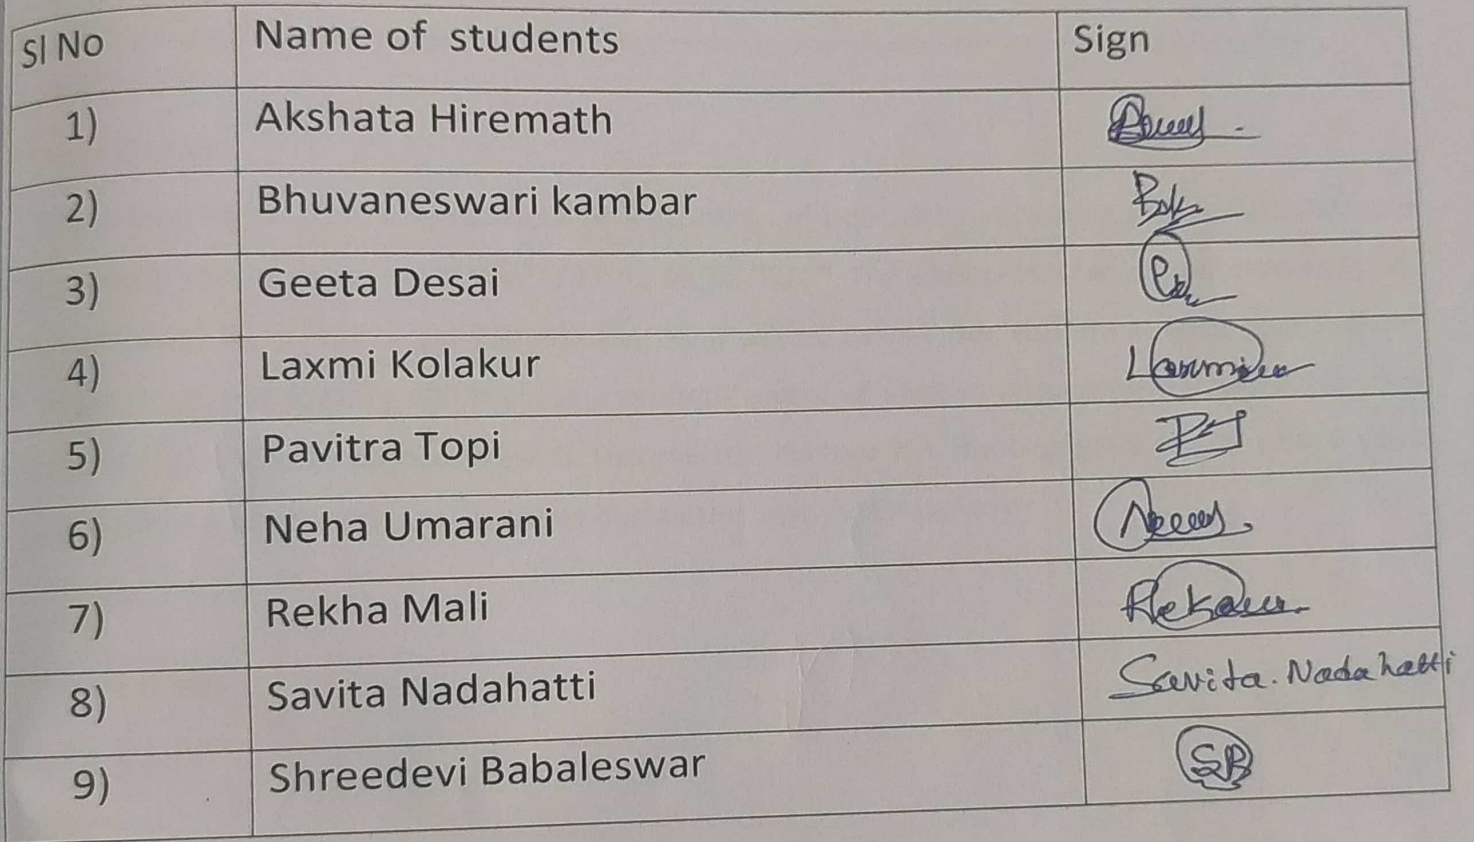 Sl No Name of students Sign
1) Akshata Hiremath
2) Bhuvaneswari kambar
3) Geeta Desai
4) Laxmi Kolakur
5) Pavitra Topi
6) Neha Umarani
7) Rekha Mali
8) Savita Nadahatti Savita. Nadahatti
9) Shreedevi Babaleswar SB